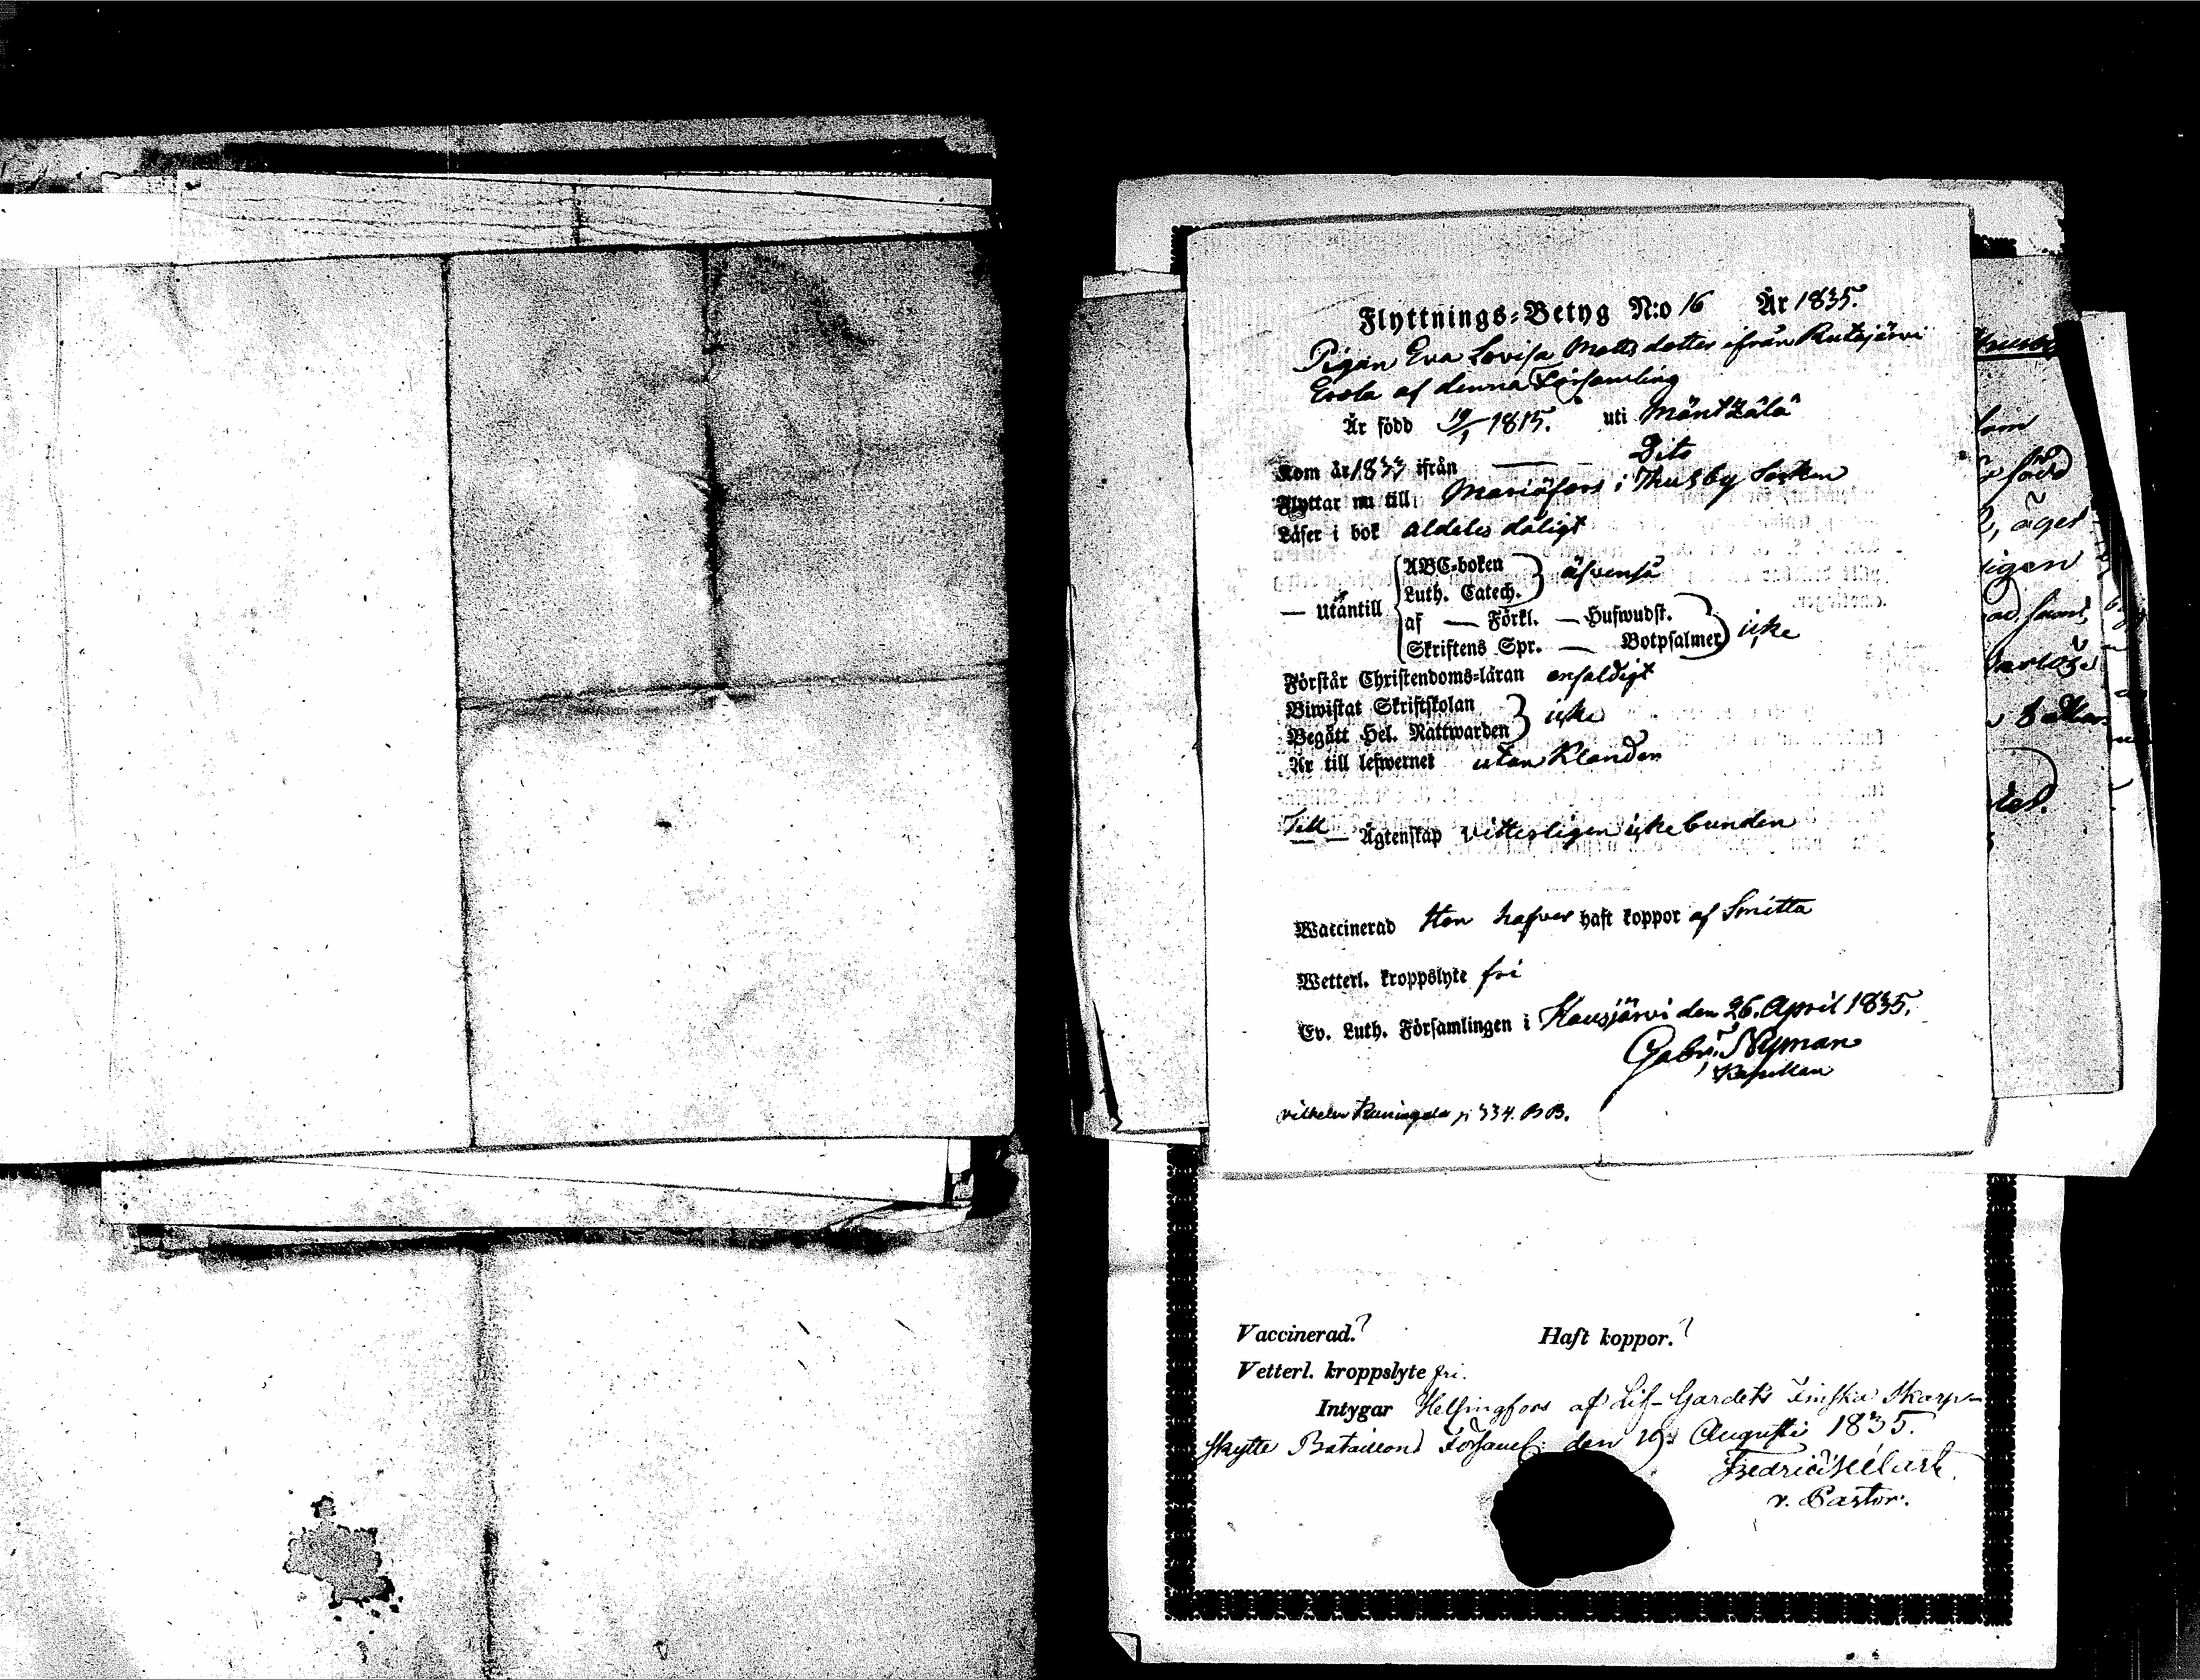 Flyttnings-Betyg N:o 16 År 1835.
Pigan Eva Lovisa Mattsdotter ifrån Rutajärvi
Erola af denna Församling
Är född 19/1 1815. uti Mäntzälä
Kom år 1833 ifrån — Dito
Flyttar nu till Mariäfors i Thusby Sokn
Läser i bok aldeles dåligt
— Utantill
ABC-boken
Luth. Catech.
äfvenså
af — Förkl. — Hufwudst.
Skriftens Spr. — Botpsalmer
icke
Förstår Christendoms-läran enfaldigt
Biwistat Skriftskolan
Begått Hel. Nattwarden
icke
Är till lefwernet utan Klander
Till — Ägtenskap vitterligen icke bunden
Waccinerad Hon hafver haft koppor af Smitta
Wetterl. kroppslyte fri
Ev. Luth. Församlingen i Hausjärvi den 26. April 1835.
Gabr. Nyman
Kapellan
p 334. BB.
född
äger
Vaccinerad.? Haft koppor.?
Vetterl. kroppslyte fri.
Intygar Helsingfors af Lif-Gardets Finska Skarp-
skytte Bataillons Församl: den 19 Augusti 1835.
Fredric
v. Pastor.